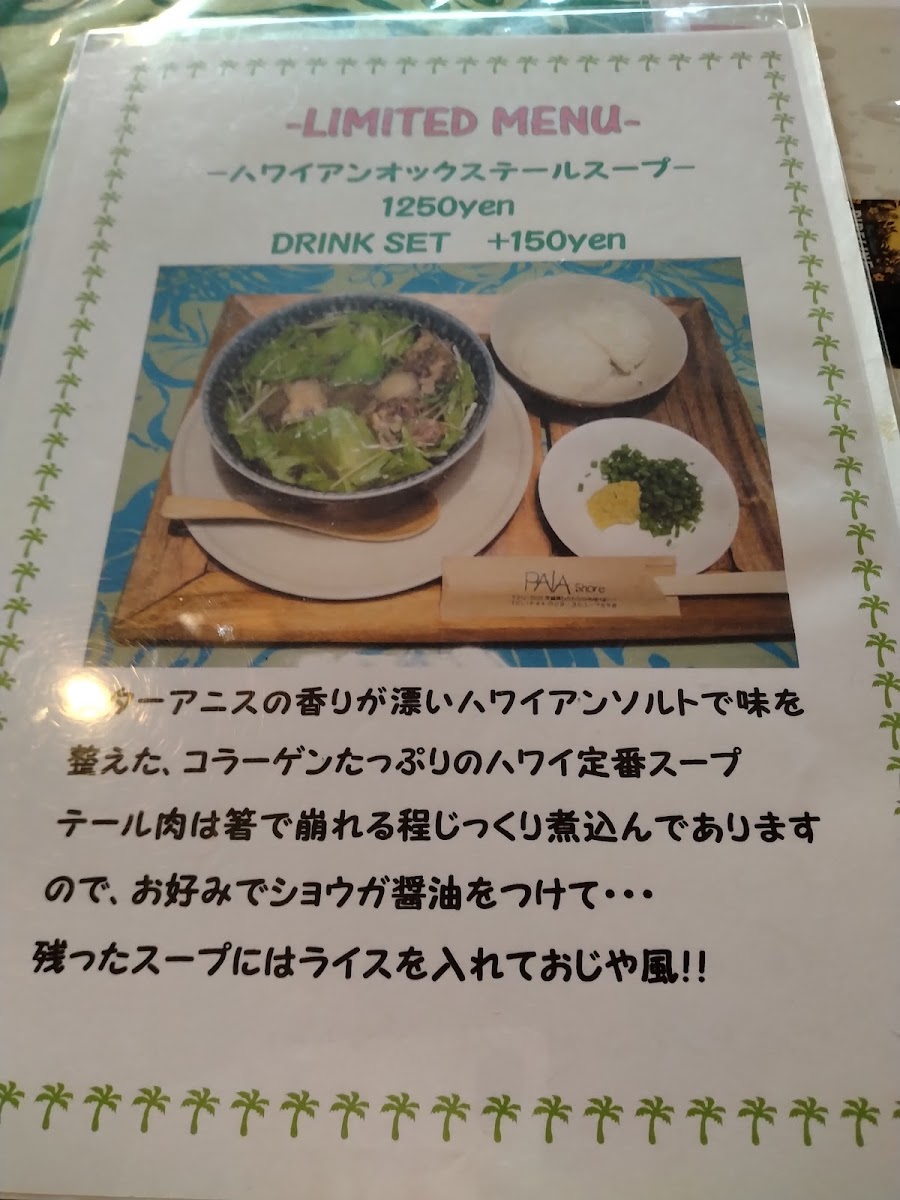 -LIMITED MENU-
-ハワイアンオックステールスープ-
1250yen
DRINK SET +150yen
PAIA Shore
ターアニスの香りが漂いハワイアンソルトで味を
整えた、コラーゲンたっぷりのハワイ定番スープ
テール肉は箸で崩れる程じっくり煮込んであります
ので、お好みでショウガ醤油をつけて・・・
残ったスープにはライスを入れておじや風!!